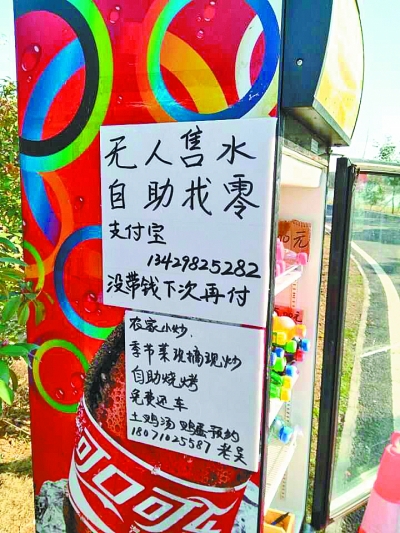 无人售水
自助找零
支付宝
13429825282
没带钱下次再付
农家小炒
季节菜现摘现炒
自助烧烤
免费还车
土鸡汤 鸡蛋预约
18071025587 老吴
可口可乐
元